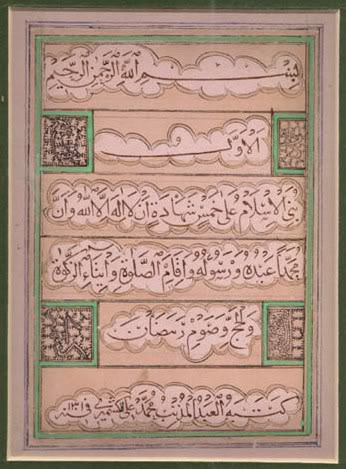 بِسْمِ اللهِ الرَّحْمٰنِ الرَّحِيْمِ
اَلْاَوَّلُ
بُنِيَ الْاِسْلَامُ عَلٰى خَمْسٍ شَهَادَةِ اَنْ لَا اِلٰهَ اِلَّا اللهُ وَاَنَّ
مُحَمَّدًا عَبْدُهُ وَرَسُولُهُ وَاِقَامِ الصَّلٰوةِ وَاِيتَاءِ الزَّكٰوةِ
وَالْحَجِّ وَصَوْمِ رَمَضَانَ
كَتَبَهُ الْعَبْدُ الْمُذْنِبُ مُحَمَّد عَلِي سنه ١٣١٩